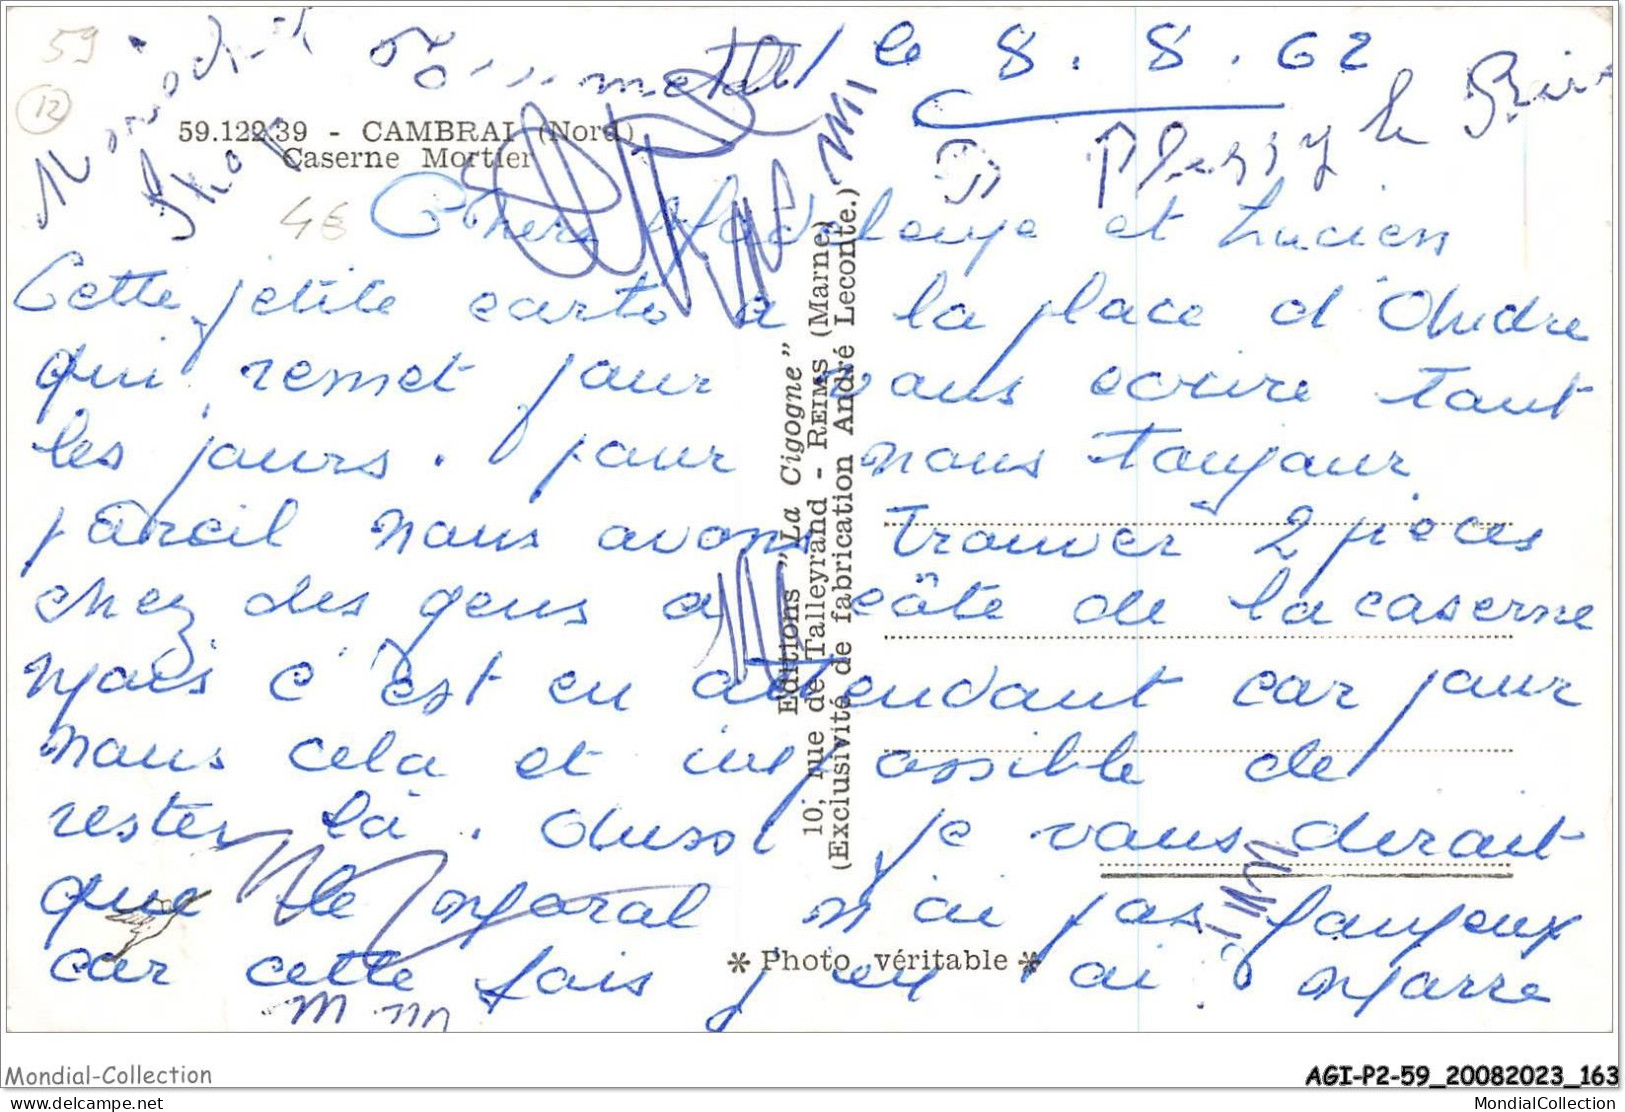 59
12
le 8.8.62
59.122.39 - CAMBRAI (Nord)
Caserne Mortier
Plessy le
Chère Madeleine et Lucien
Cette petite carte à la place d'Andre
qui remet jour vous ecrire tant
les jours. pour nous toujour
pareil nous avons trouver 2 pieces
chez des gens a côte de la caserne
mais c'est en attendant car pour
nous cela et impossible de
rester là. Aussi je vous dirait
que le moral n'ai pas fameux
car cette fois j'en ai marre
Editions "La Cigogne"
10, rue de Talleyrand - REIMS (Marne)
(Exclusivité de fabrication André Leconte.)
* Photo véritable *
Mondial-Collection
AGI-P2-59_20082023_163
delcampe.net
MondialCollection